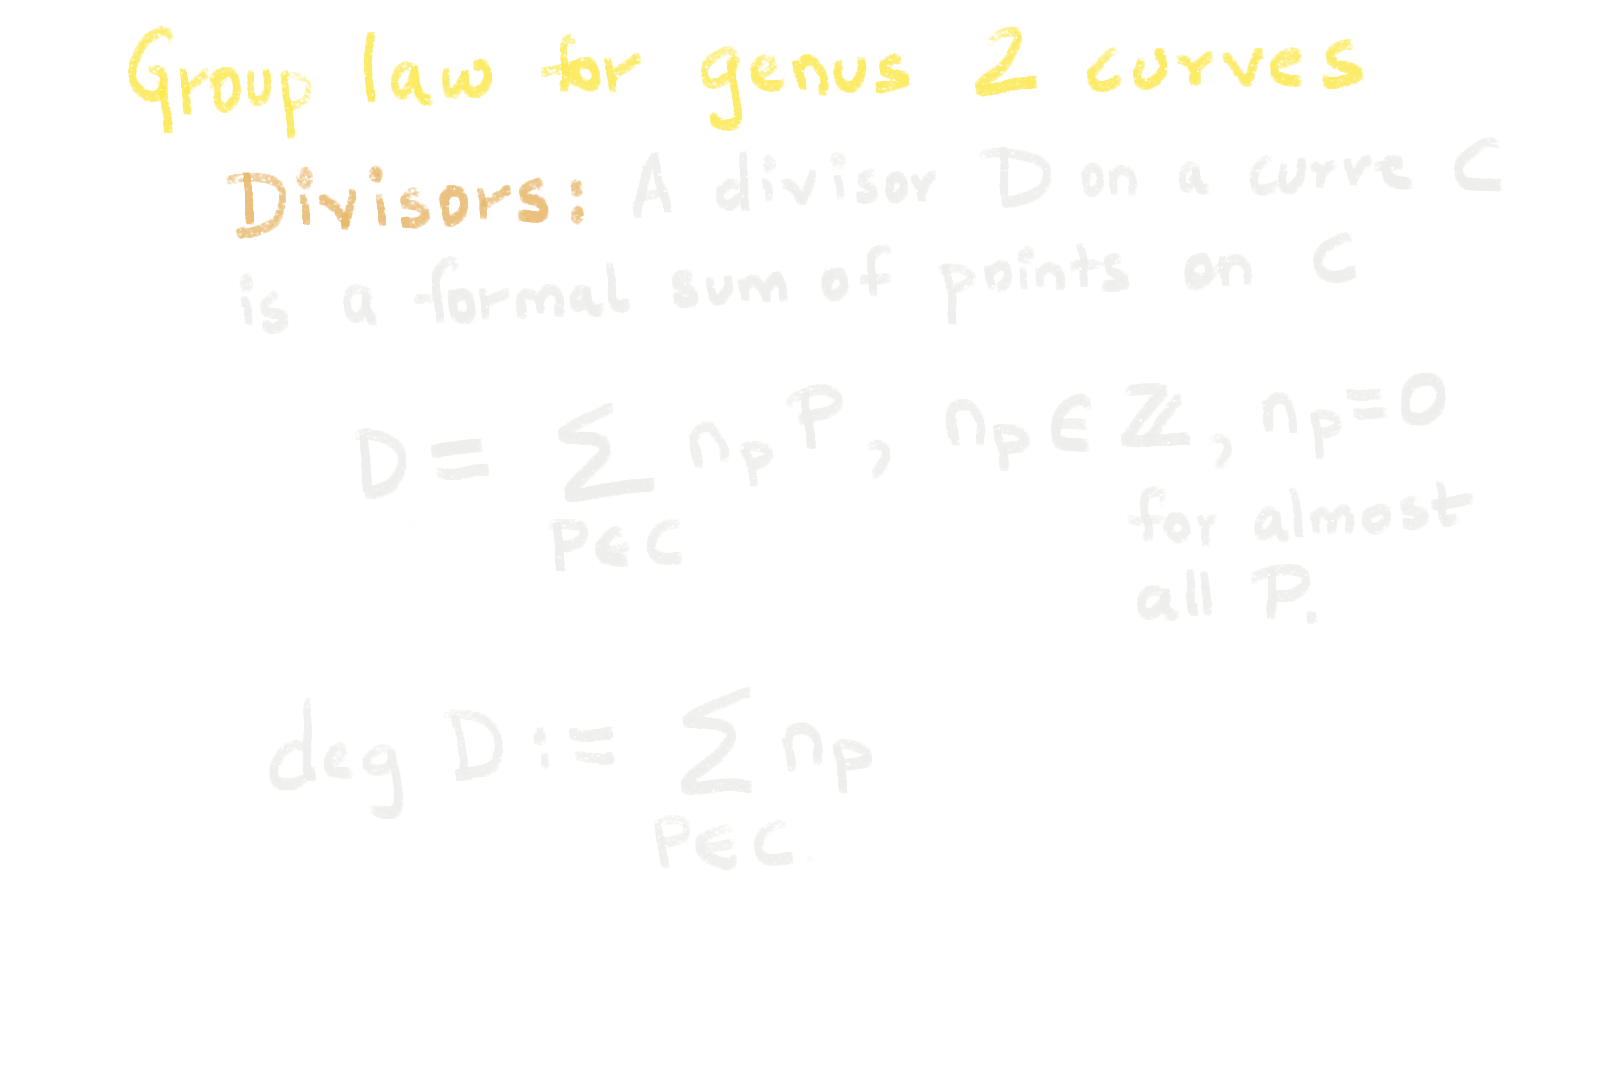 Group law for genus 2 curves
Divisors: A divisor D on a curve C
is a formal sum of points on C
D = ∑ n_P P, n_P ∈ ℤ, n_P = 0
P ∈ C
for almost
all P.
deg D := ∑ n_P
P ∈ C